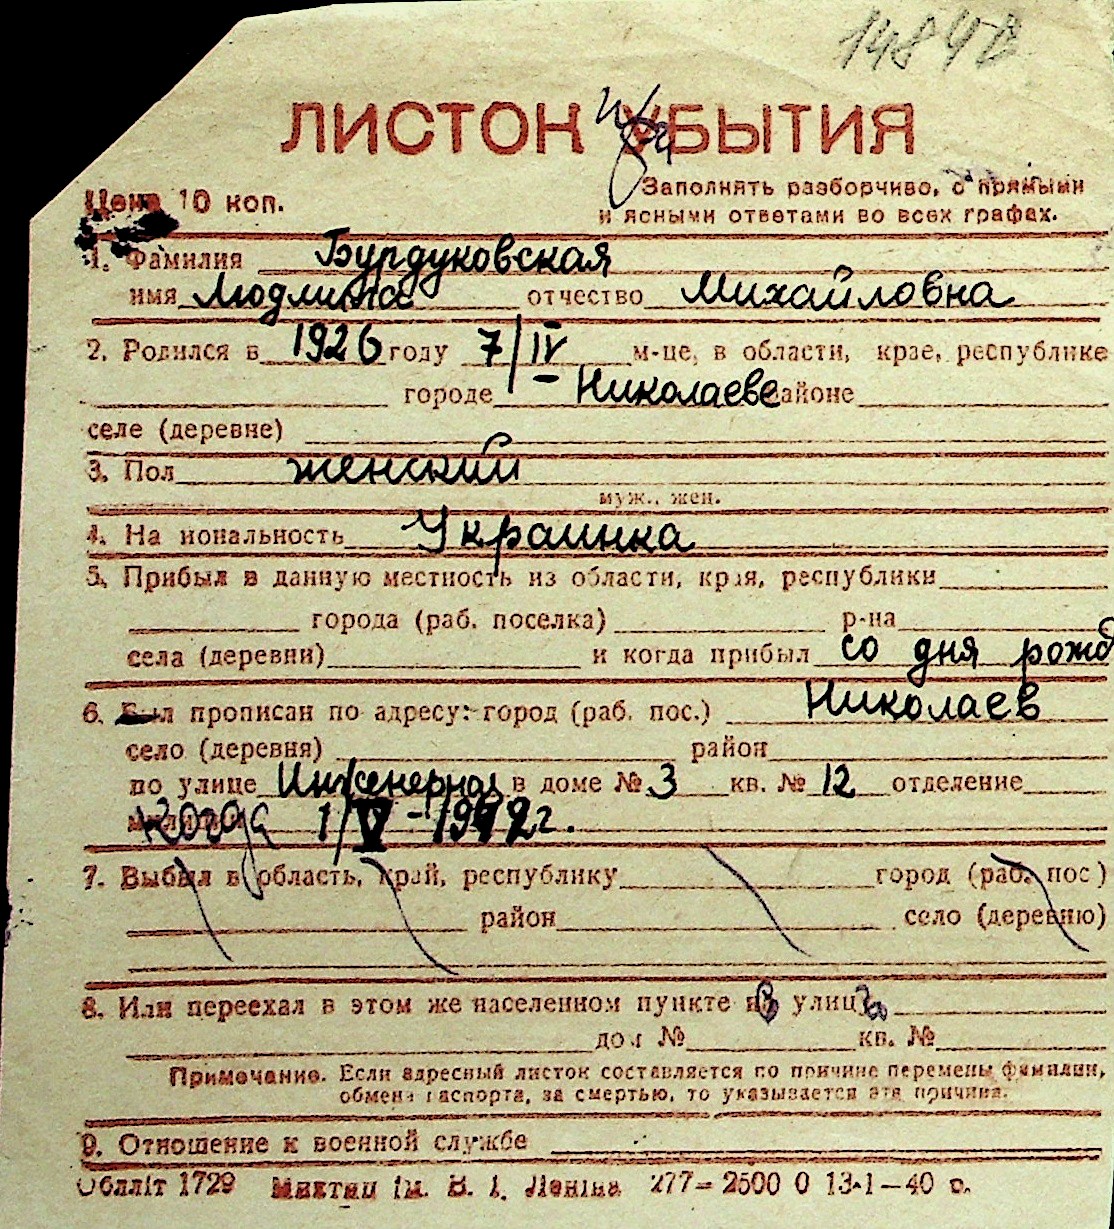 14848
ЛИСТОК УБЫТИЯ
Цена 10 коп.
Заполнять разборчиво, с прямыми
и ясными ответами во всех графах.
1. Фамилия Бурдуковская
имя Людмила отчество Михайловна
2. Родился в 1926 году 7/IV м-це, в области, крае, республике
городе - Николаеве районе
селе (деревне)
3. Пол женский
муж., жен.
4. Национальность Украинка
5. Прибыл в данную местность из области, края, республики
города (раб. поселка) р-на
села (деревни) и когда прибыл со дня рожд
6. Был прописан по адресу: город (раб. пос.) Николаев
село (деревня) район
по улице Инженерная в доме № 3 кв. № 12 отделение
когда 1/V - 1942 г.
7. Выбыл в область, край, республику город (раб. пос)
район село (деревню)
8. Или переехал в этом же населенном пункте в улица
дом № кв. №
Примечание. Если адресный листок составляется по причине перемены фамилии,
обмена паспорта, за смертью, то указывается эта причина.
9. Отношение к военной службе
Обллiт 1729 ім. В. І. Леніна 277— 2500 0 13-1—40 р.